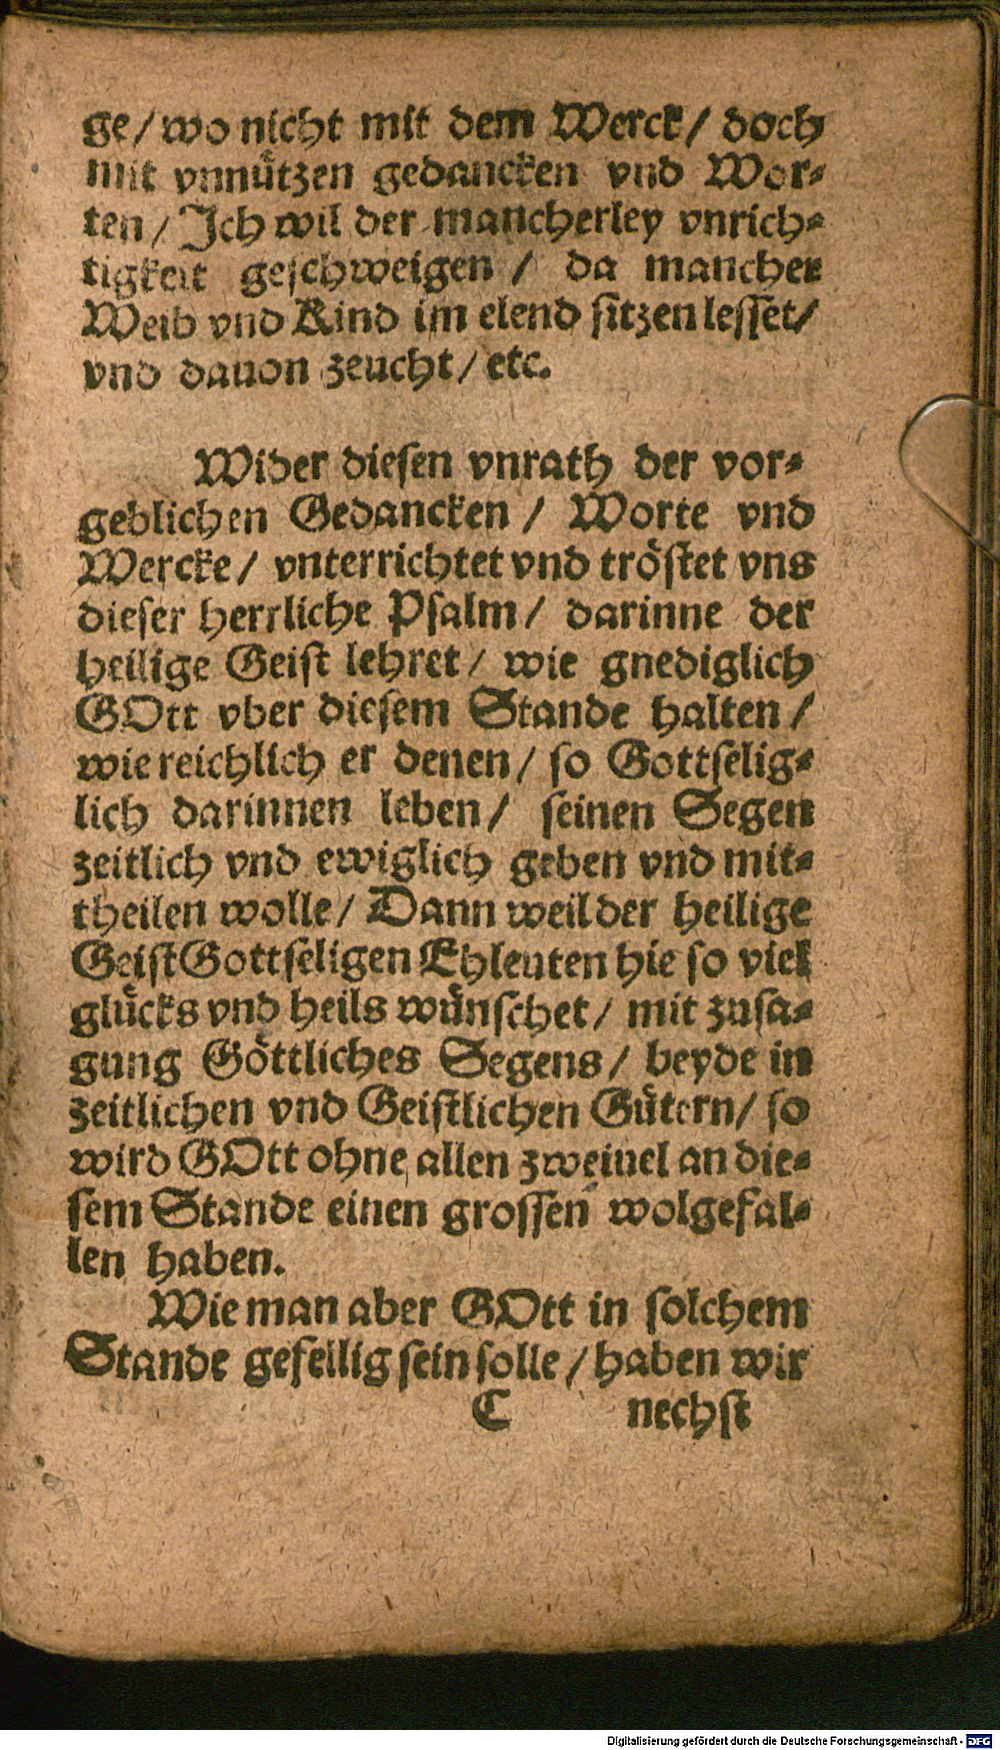 ge/ wo nicht mit dem Werck/ doch
mit vnnützen gedancken vnd Wor-
ten/ Ich wil der mancherley vnrich-
tigkeit geschweigen / da mancher
Weib vnd Kind im elend sitzen lesset/
vnd dauon zeucht/ etc.
Wider diesen vnrath der vor-
geblichen Gedancken / Worte vnd
Wercke/ vnterrichtet vnd tröstet vns
dieser herrliche Psalm/ darinne der
heilige Geist lehret/ wie gnediglich
GOtt vber diesem Stande halten /
wie reichlich er denen/ so Gottselig-
lich darinnen leben/ seinen Segen
zeitlich vnd ewiglich geben vnd mit-
theilen wolle/ Dann weil der heilige
Geist Gottseligen Ehleuten hie so viel
glücks vnd heils wünschet/ mit zusa-
gung Göttliches Segens/ beyde in
zeitlichen vnd Geistlichen Gütern/ so
wird GOtt ohne allen zweiuel an die-
sem Stande einen grossen wolgefal-
len haben.
Wie man aber GOtt in solchem
Stande gefellig sein solle/ haben wir
C nechst
Digitalisierung gefördert durch die Deutsche Forschungsgemeinschaft - DFG